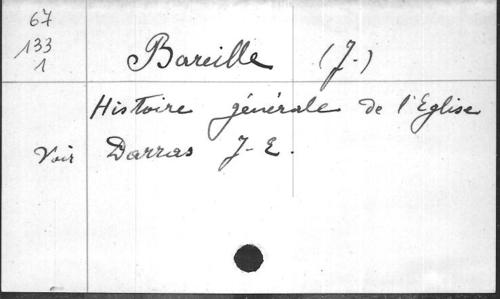 67
133
1
Bareille (J.)
Histoire générale de l'Eglise
Voir Darras J-E.